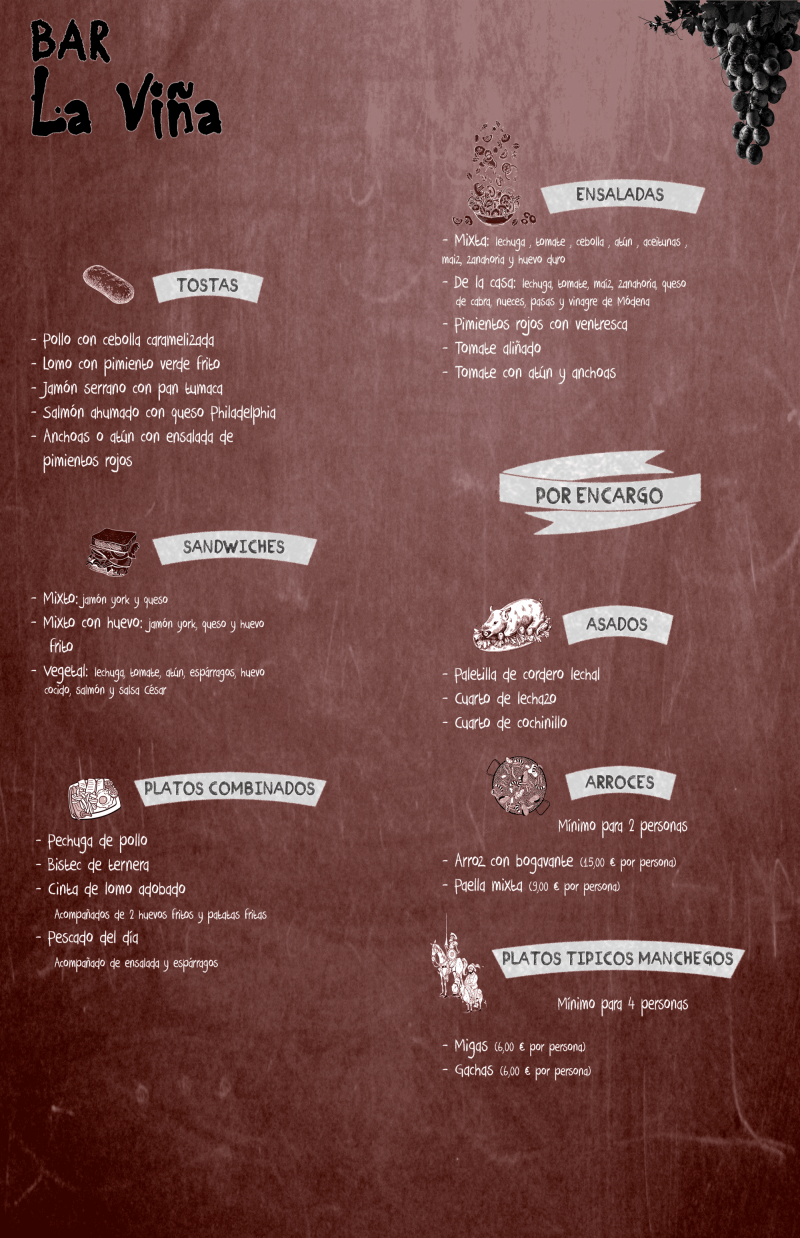 BAR
La Viña
TOSTAS
- Pollo con cebolla caramelizada
- Lomo con pimiento verde frito
- Jamón serrano con pan tumaca
- Salmón ahumado con queso Philadelphia
- Anchoas o atún con ensalada de
pimientos rojos
SANDWICHES
- Mixto: jamón york y queso
- Mixto con huevo: jamón york, queso y huevo
frito
- Vegetal: lechuga, tomate, atún, espárragos, huevo
cocido, salmón y salsa César
PLATOS COMBINADOS
- Pechuga de pollo
- Bistec de ternera
- Cinta de lomo adobado
Acompañados de 2 huevos fritos y patatas fritas
- Pescado del día
Acompañado de ensalada y espárragos
ENSALADAS
- Mixta: lechuga , tomate , cebolla , atún , aceitunas ,
maiz, zanahoria y huevo duro
- De la casa: lechuga, tomate, maíz, zanahoria, queso
de cabra, nueces, pasas y vinagre de Módena
- Pimientos rojos con ventresca
- Tomate aliñado
- Tomate con atún y anchoas
POR ENCARGO
ASADOS
- Paletilla de cordero lechal
- Cuarto de lechazo
- Cuarto de cochinillo
ARROCES
Mínimo para 2 personas
- Arroz con bogavante (15,00 € por persona)
- Paella mixta (9,00 € por persona)
PLATOS TIPICOS MANCHEGOS
Mínimo para 4 personas
- Migas (6,00 € por persona)
- Gachas (6,00 € por persona)